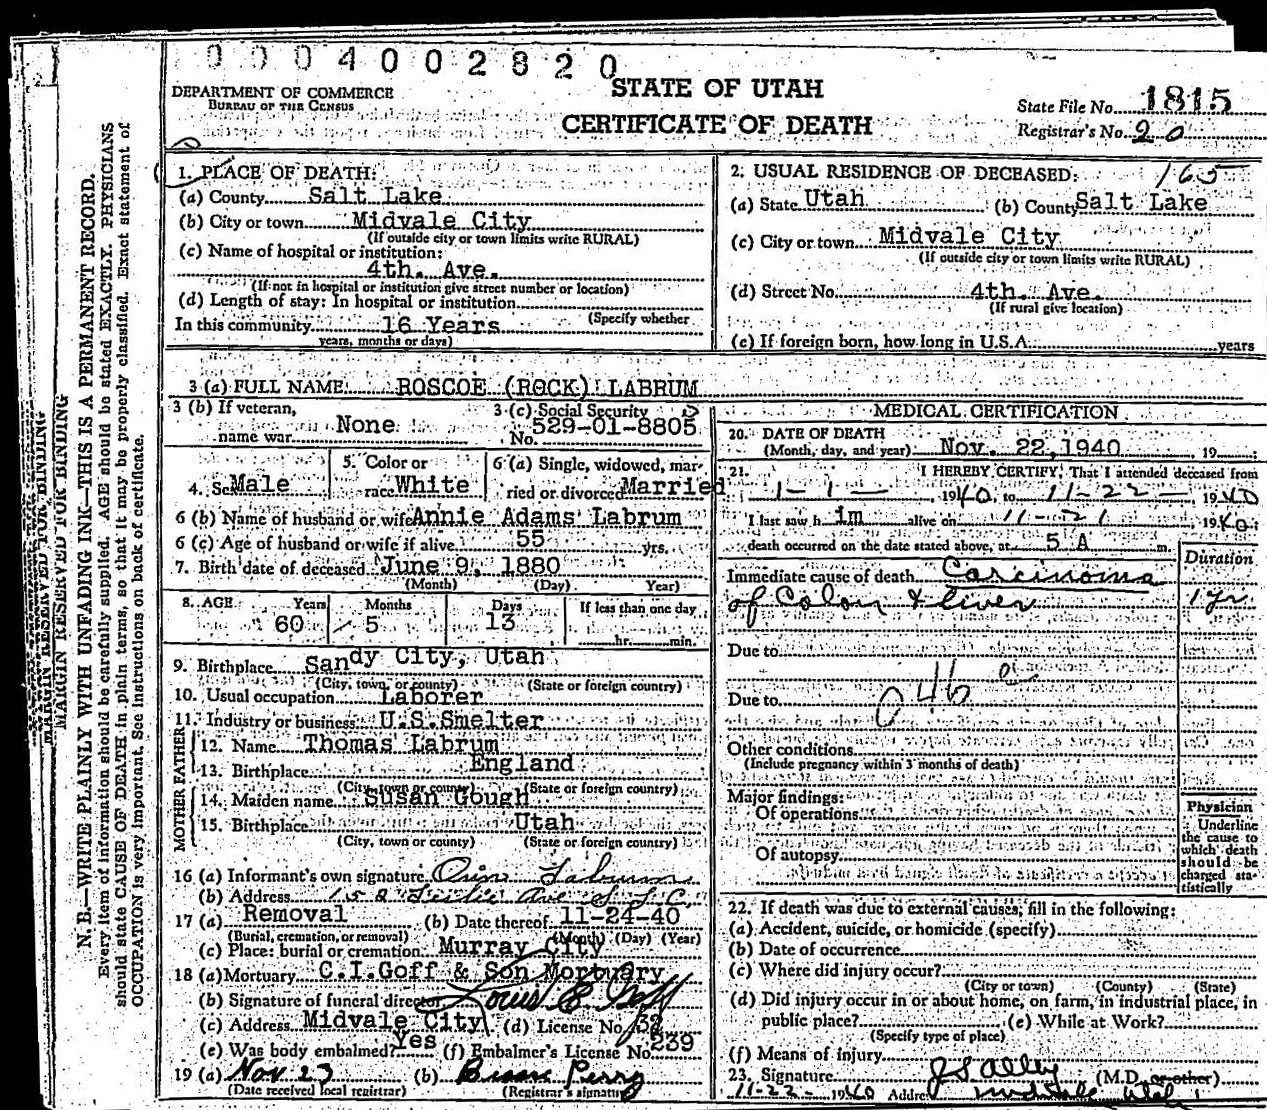 0004002820
STATE OF UTAH
CERTIFICATE OF DEATH
DEPARTMENT OF COMMERCE
BUREAU OF THE CENSUS
State File No. 1815
Registrar's No. 20
MARGIN RESERVED FOR BINDING
N. B.—WRITE PLAINLY WITH UNFADING INK—THIS IS A PERMANENT RECORD.
Every item of information should be carefully supplied. AGE should be stated EXACTLY. PHYSICIANS
should state CAUSE OF DEATH in plain terms, so that it may be properly classified. Exact statement of
OCCUPATION is very important. See instructions on back of certificate.
1. PLACE OF DEATH:
(a) County Salt Lake
(b) City or town Midvale City
(If outside city or town limits write RURAL)
(c) Name of hospital or institution:
4th. Ave.
(If not in hospital or institution give street number or location)
(d) Length of stay: In hospital or institution
(Specify whether
In this community 16 Years
years, months or days)
2. USUAL RESIDENCE OF DECEASED: 165
(a) State Utah (b) County Salt Lake
(c) City or town Midvale City
(If outside city or town limits write RURAL)
(d) Street No. 4th. Ave.
(If rural give location)
(e) If foreign born, how long in U.S.A. years
3 (a) FULL NAME ROSCOE (ROCK) LABRUM
3 (b) If veteran,
name war None
3 (c) Social Security
No. 529-01-8805
4. Sex Male
5. Color or
race White
6 (a) Single, widowed, mar-
ried or divorced Married
6 (b) Name of husband or wife Annie Adams Labrum
6 (c) Age of husband or wife if alive 55 yrs.
7. Birth date of deceased June 9, 1880
(Month) (Day) Year)
8. AGE Years Months Days If less than one day
60 5 13 hr. min.
9. Birthplace Sandy City, Utah
(City, town, or county) (State or foreign country)
10. Usual occupation Laborer
11. Industry or business U.S.Smelter
FATHER
12. Name Thomas Labrum
13. Birthplace England
(City, town or county) (State or foreign country)
MOTHER
14. Maiden name Susan Gough
15. Birthplace Utah
(City, town or county) (State or foreign country)
16 (a) Informant's own signature Labrum
(b) Address Leslie Ave S. L. C.
17 (a) Removal (b) Date thereof 11-24-40
(Burial, cremation, or removal) (Month) (Day) (Year)
(c) Place: burial or cremation Murray City
18 (a) Mortuary C.I.Goff & Son Mortuary
(b) Signature of funeral director Louis E Goff
(c) Address Midvale City (d) License No. 132
(e) Was body embalmed? Yes (f) Embalmer's License No. 239
19 (a) Nov 23 (b) Perry
(Date received local registrar) (Registrar's signature)
MEDICAL CERTIFICATION
20. DATE OF DEATH
(Month, day, and year) Nov. 22,1940 19
21. I HEREBY CERTIFY, That I attended deceased from
1-1- 1940 to 11-22- 1940
I last saw him alive on 11-21 1940
death occurred on the date stated above, at 5 A m.
Duration
Immediate cause of death Carcinoma
of Colon & liver 1 yr.
Due to
Due to 046 e
Other conditions
(Include pregnancy within 3 months of death)
Major findings:
Of operations
Of autopsy
Physician
Underline
the cause to
which death
should be
charged sta-
tistically
22. If death was due to external causes, fill in the following:
(a) Accident, suicide, or homicide (specify)
(b) Date of occurrence
(c) Where did injury occur?
(City or town) (County) (State)
(d) Did injury occur in or about home, on farm, in industrial place, in
public place? (e) While at Work?
(Specify type of place)
(f) Means of injury
23. Signature J S Alley (M.D. or other)
11-22- 1940 Address Midvale Utah